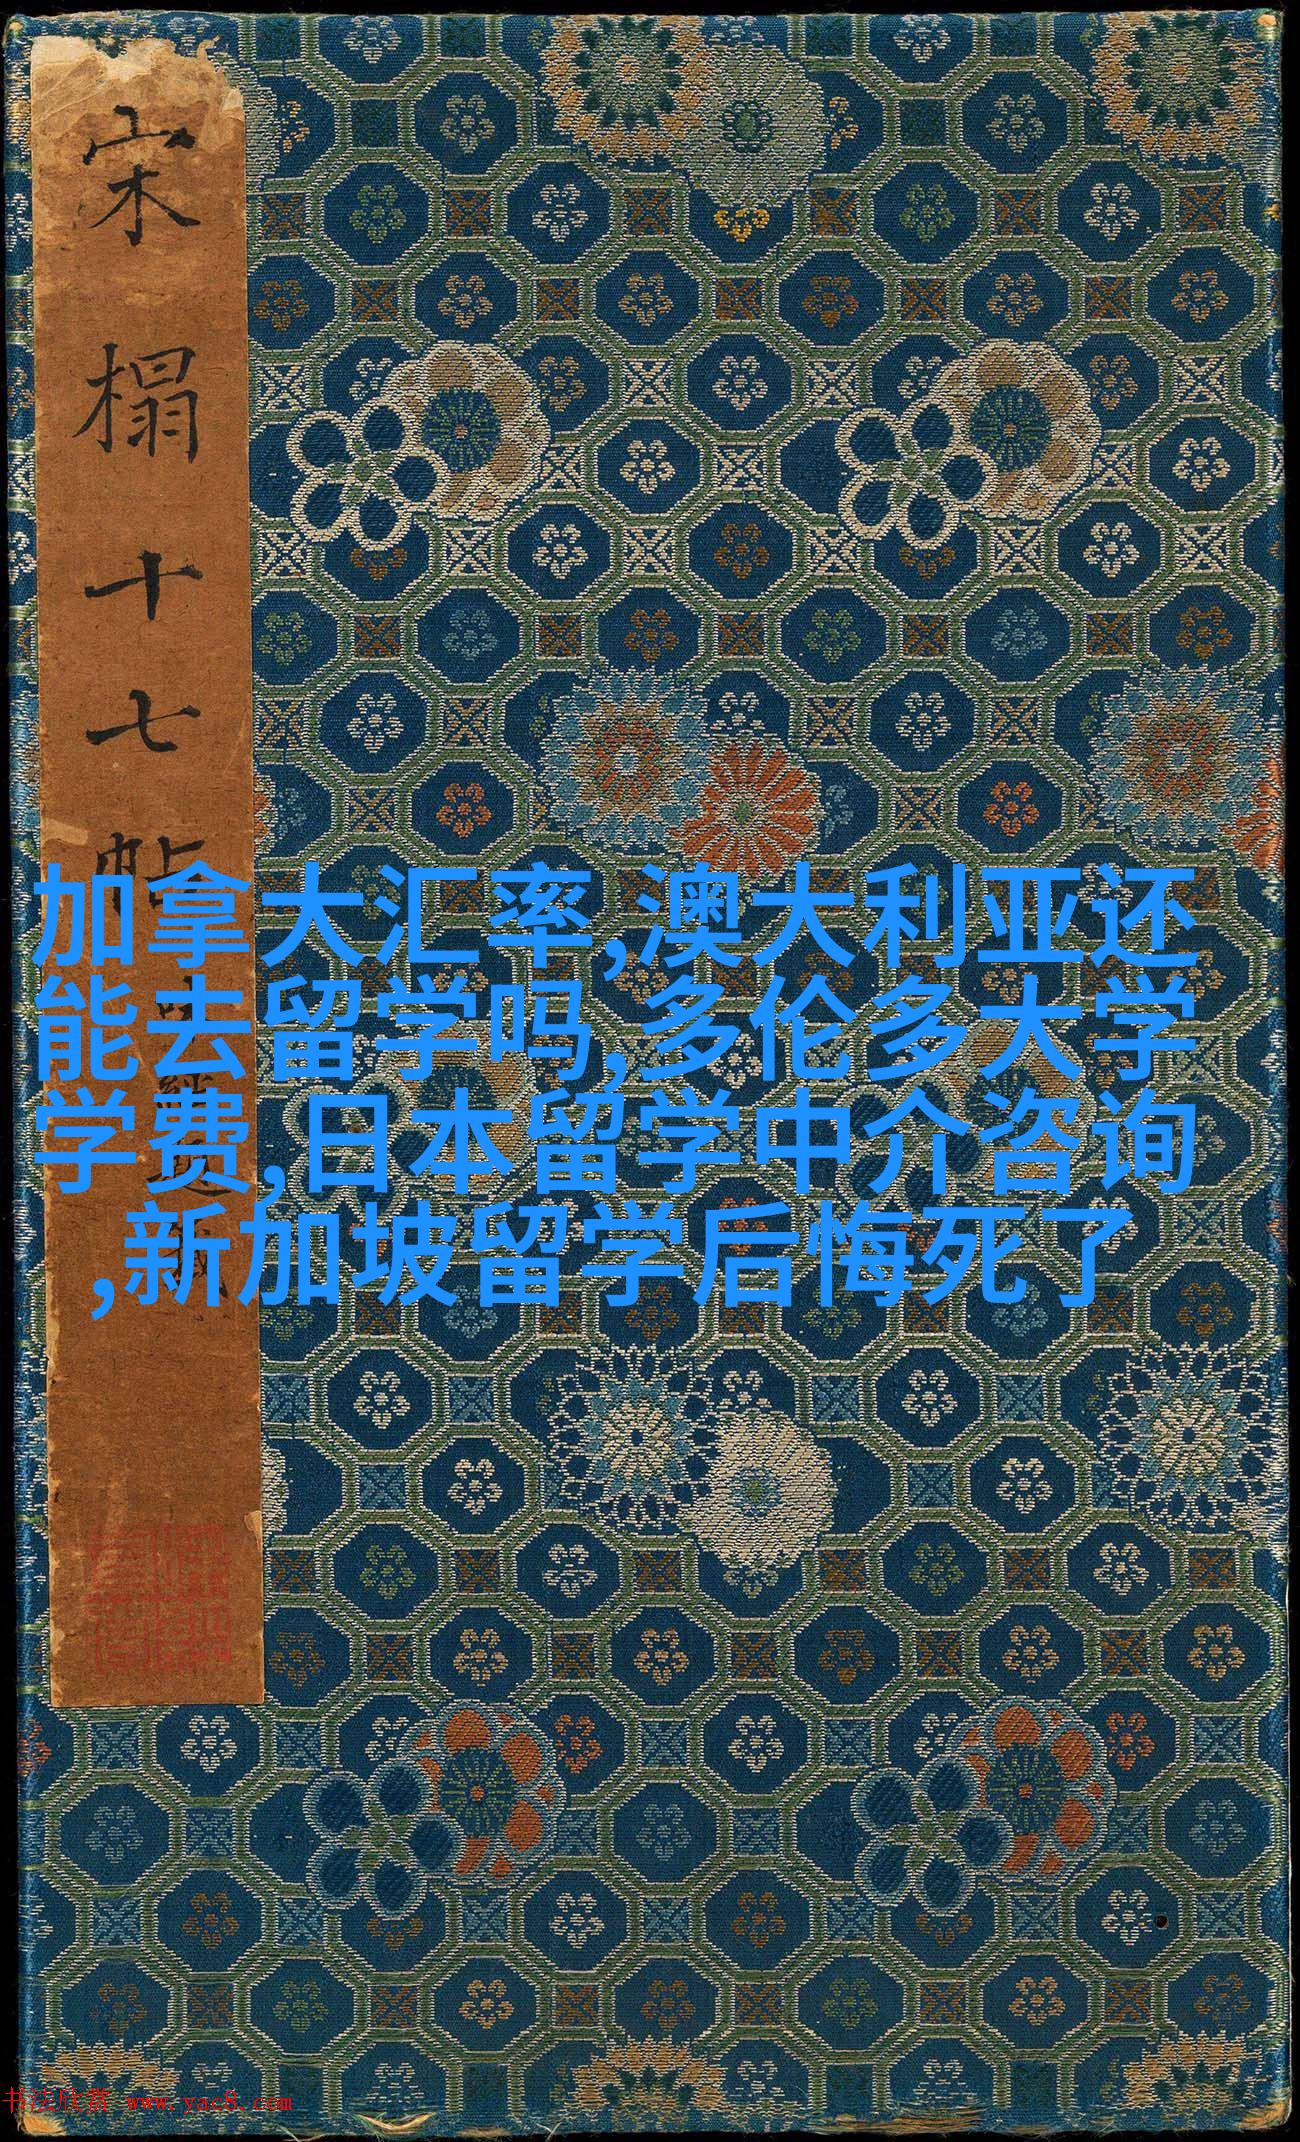 宋榻十七帖
加拿大汇率,澳大利亚还
能去留学吗,多伦多大学
学费,日本留学中介咨询
,新加坡留学后悔死了
书法欣赏 www.yac8.com